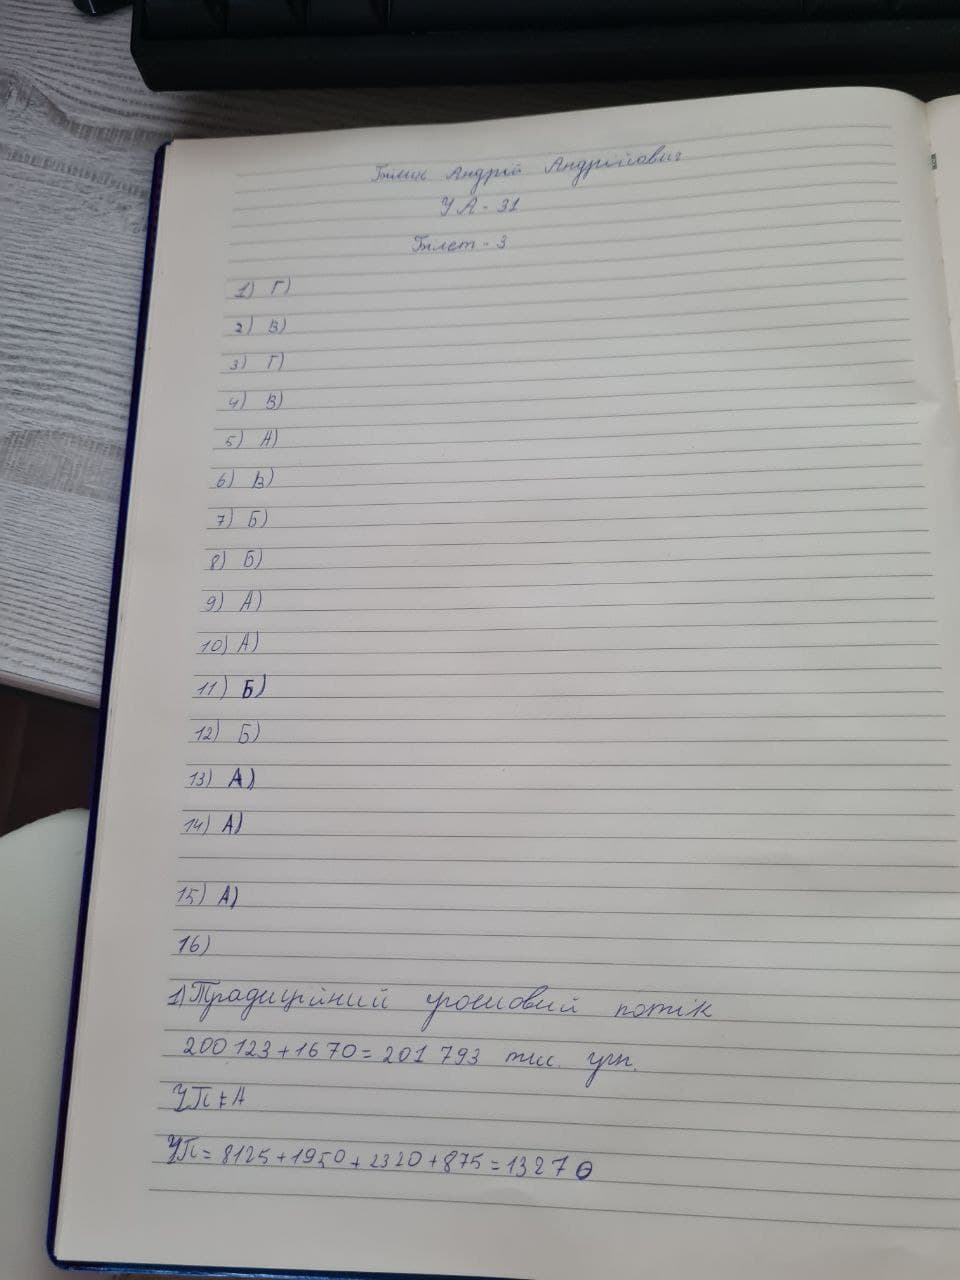 Білик Андрій Андрійович
УА - 31
Білет - 3
1) Г)
2) В)
3) Г)
4) В)
5) А)
6) В)
7) Б)
8) Б)
9) А)
10) А)
11) Б)
12) Б)
13) А)
14) А)
15) А)
16)
1) Традиційний грошовий потік
200 123 + 1670 = 201 793 тис. грн.
ЧП + А
ЧП = 8125 + 1950 + 2320 + 875 = 13270